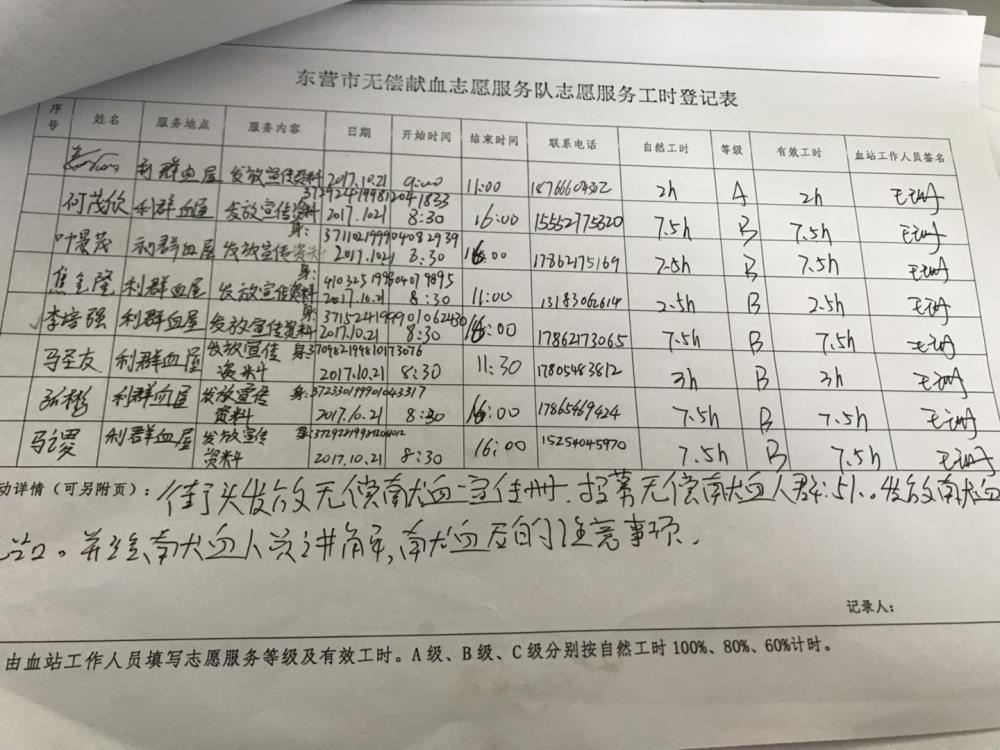 东营市无偿献血志愿服务队志愿服务工时登记表
序号 姓名 服务地点 服务内容 日期 开始时间 结束时间 联系电话 自然工时 等级 有效工时 血站工作人员签名
利群血屋 发放宣传资料 2017.10.21 9:00 11:00 2h A 2h
何茂欣 利群血屋 发放宣传资料 身: 372924199812041833 2017.1021 8:30 16:00 15552775320 7.5h B 7.5h
叶景茂 利群血屋 发放宣传资料 身: 371102199904082939 2017.1021 8:30 16:00 17862175169 7.5h B 7.5h
焦金隆 利群血屋 发放宣传资料 身: 410325199804079895 2017.10.21 8:30 11:00 13183062614 2.5h B 2.5h
李培强 利群血屋 发放宣传资料 身: 371524199901062430 2017.10.21 8:30 16:00 17862173065 7.5h B 7.5h
马圣友 利群血屋 发放宣传资料 身: 370982199810173076 2017.10.21 8:30 11:30 17805483812 3h B 3h
张彬 利群血屋 发放宣传资料 身: 372330199901043317 2017.10.21 8:30 16:00 17865469424 7.5h B 7.5h
利群血屋 发放宣传资料 2017.10.21 8:30 16:00 15254045970 7.5h B 7.5h
动详情（可另附页）：街头发放无偿献血宣传册.招募无偿献血人群.51.。发放献血
。并给献血人员讲解,献血后的注意事项.
记录人：
由血站工作人员填写志愿服务等级及有效工时。A级、B级、C级分别按自然工时100%、80%、60%计时。